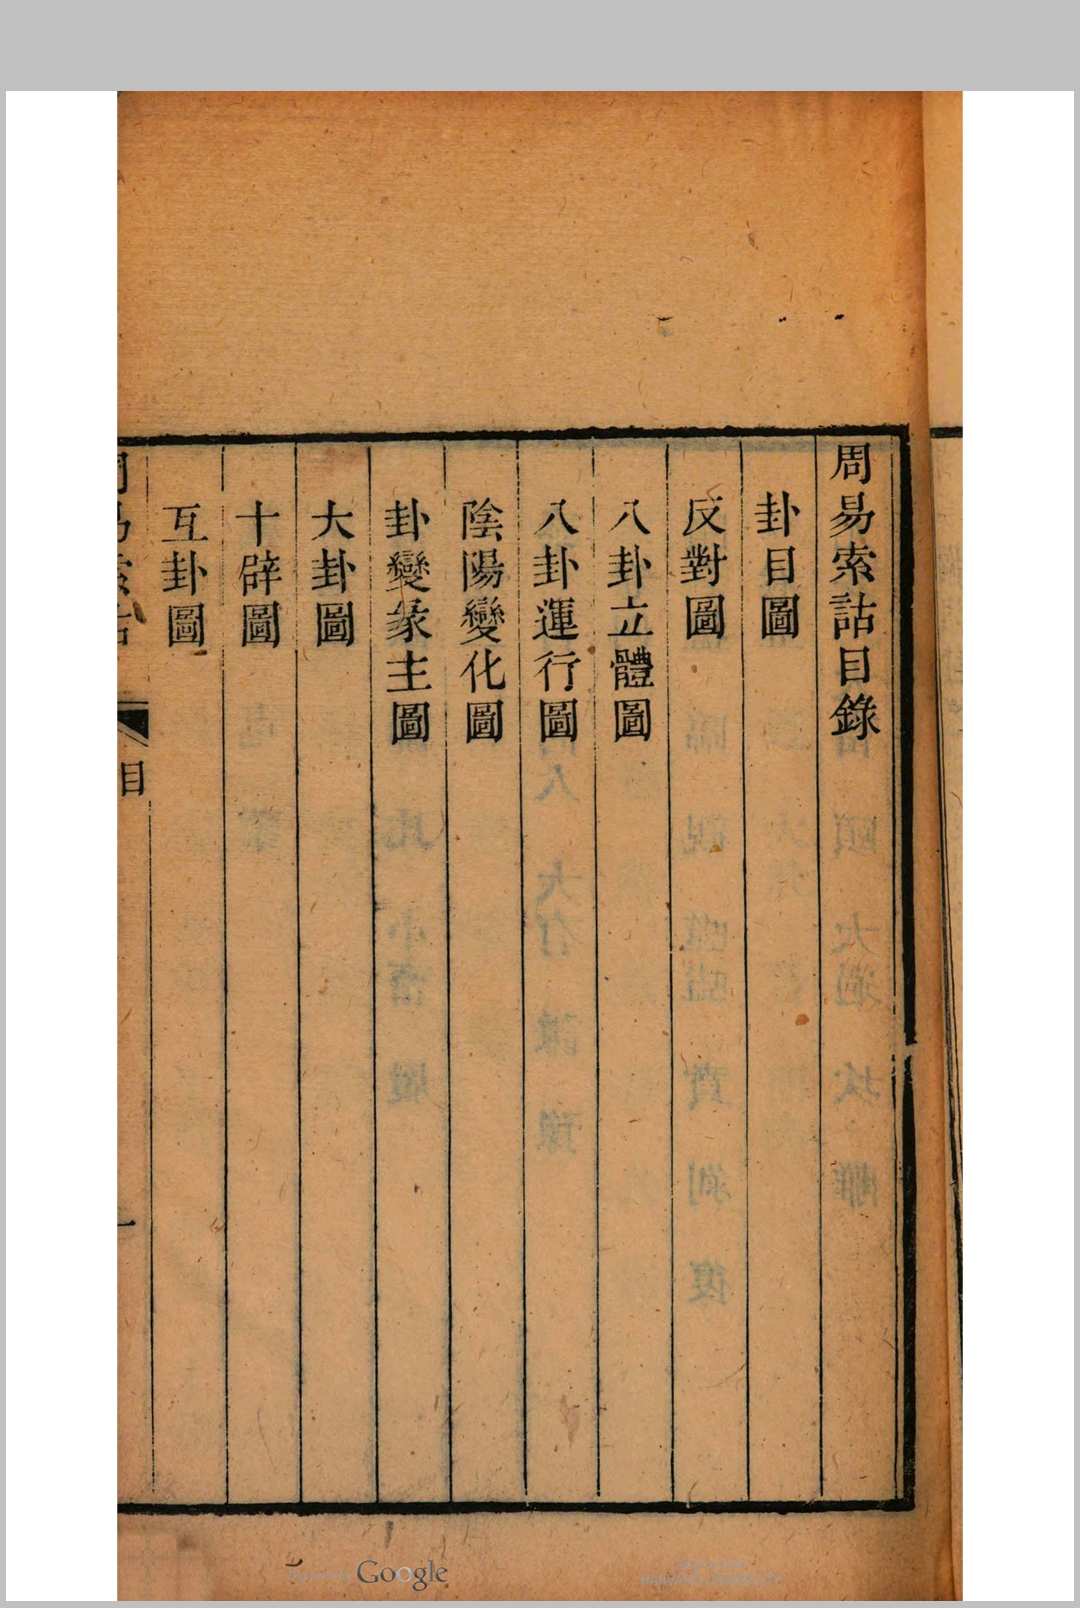 周易索詁目錄
卦目圖
反對圖
八卦立體圖
八卦運行圖
陰陽變化圖
卦變彖主圖
大卦圖
十辟圖
互卦圖
目
一
Google